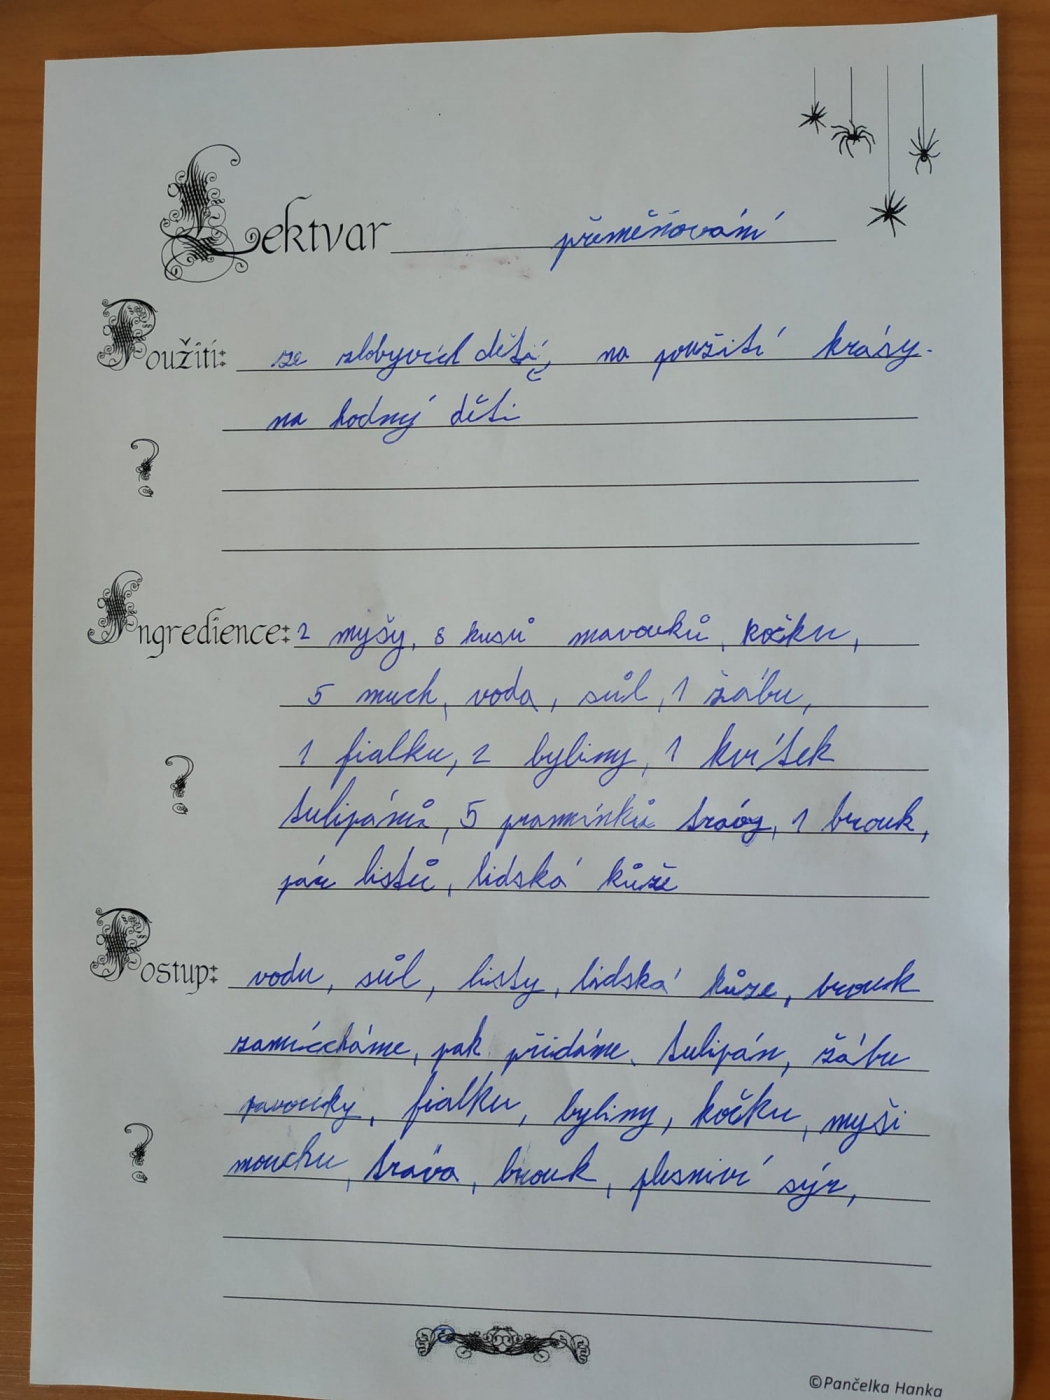 Lektvar přeměňování
Použití: ze zlobyvích dětí, na použití krásy.
na hodný děti
?
Ingredience: 2 myšy, 8 kusů mavouků, kočku,
5 much, voda, sůl, 1 žábu,
? 1 fialku, 2 byliny, 1 kvítek
tulipánů, 5 pramínků trávy, 1 brouk,
pár listů, lidská kůže
Postup: vodu, sůl, listy, lidská kůze, brouk
zamíccháme, pak přidáme tulipán, žábu
pavouky, fialku, byliny, kočku, myši
? mouchu, tráva, brouk, plesniví sýr,
©Pančelka Hanka